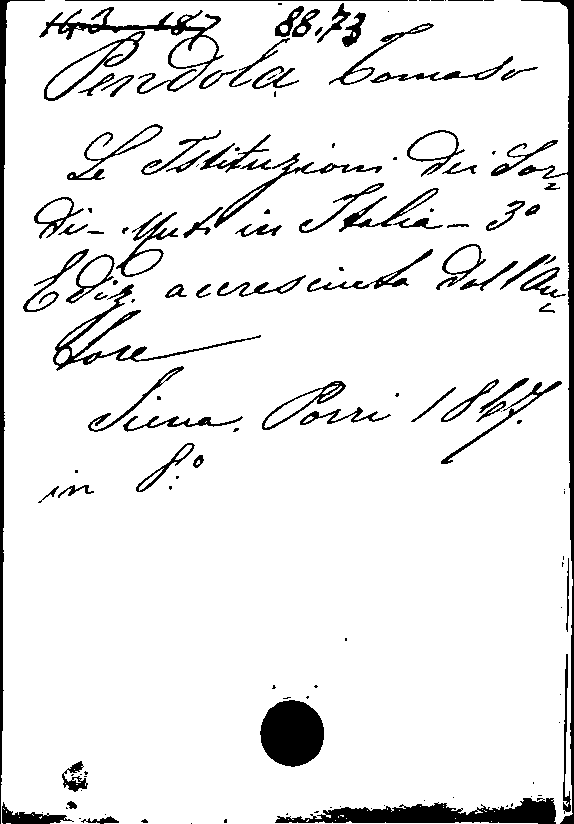 14.3.-187 88.73
Pendola Tomaso
Le Istituzioni dei Sor-
di-Muti in Italia - 3ª
Ediz. accresciuta dall'Au-
tore
Siena. Porri 1867.
in 8.º